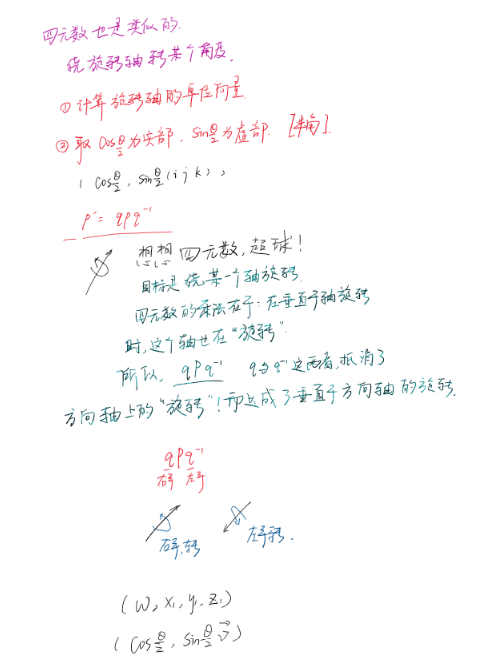 四元数也是类似的.
绕旋转轴转某个角度.
① 计算旋转轴的单位向量
② 取 Cosθ/2 为实部. Sinθ/2 为虚部. [半角].
( Cosθ/2, Sinθ/2 (i j k) )
P' = qpq⁻¹
想想 四元数, 超球!
目标是绕某一个轴旋转
四元数的乘法在于: 在垂直于轴旋转
时, 这个轴也在“旋转”.
所以, qpq⁻¹ q与q⁻¹ 这两者, 抵消了
方向轴上的“旋转”! 而达成了垂直于方向轴的旋转.
qpq⁻¹
右手 左手
右手转 左手转.
(w, x, y, z)
(Cosθ/2, Sinθ/2 v⃗)